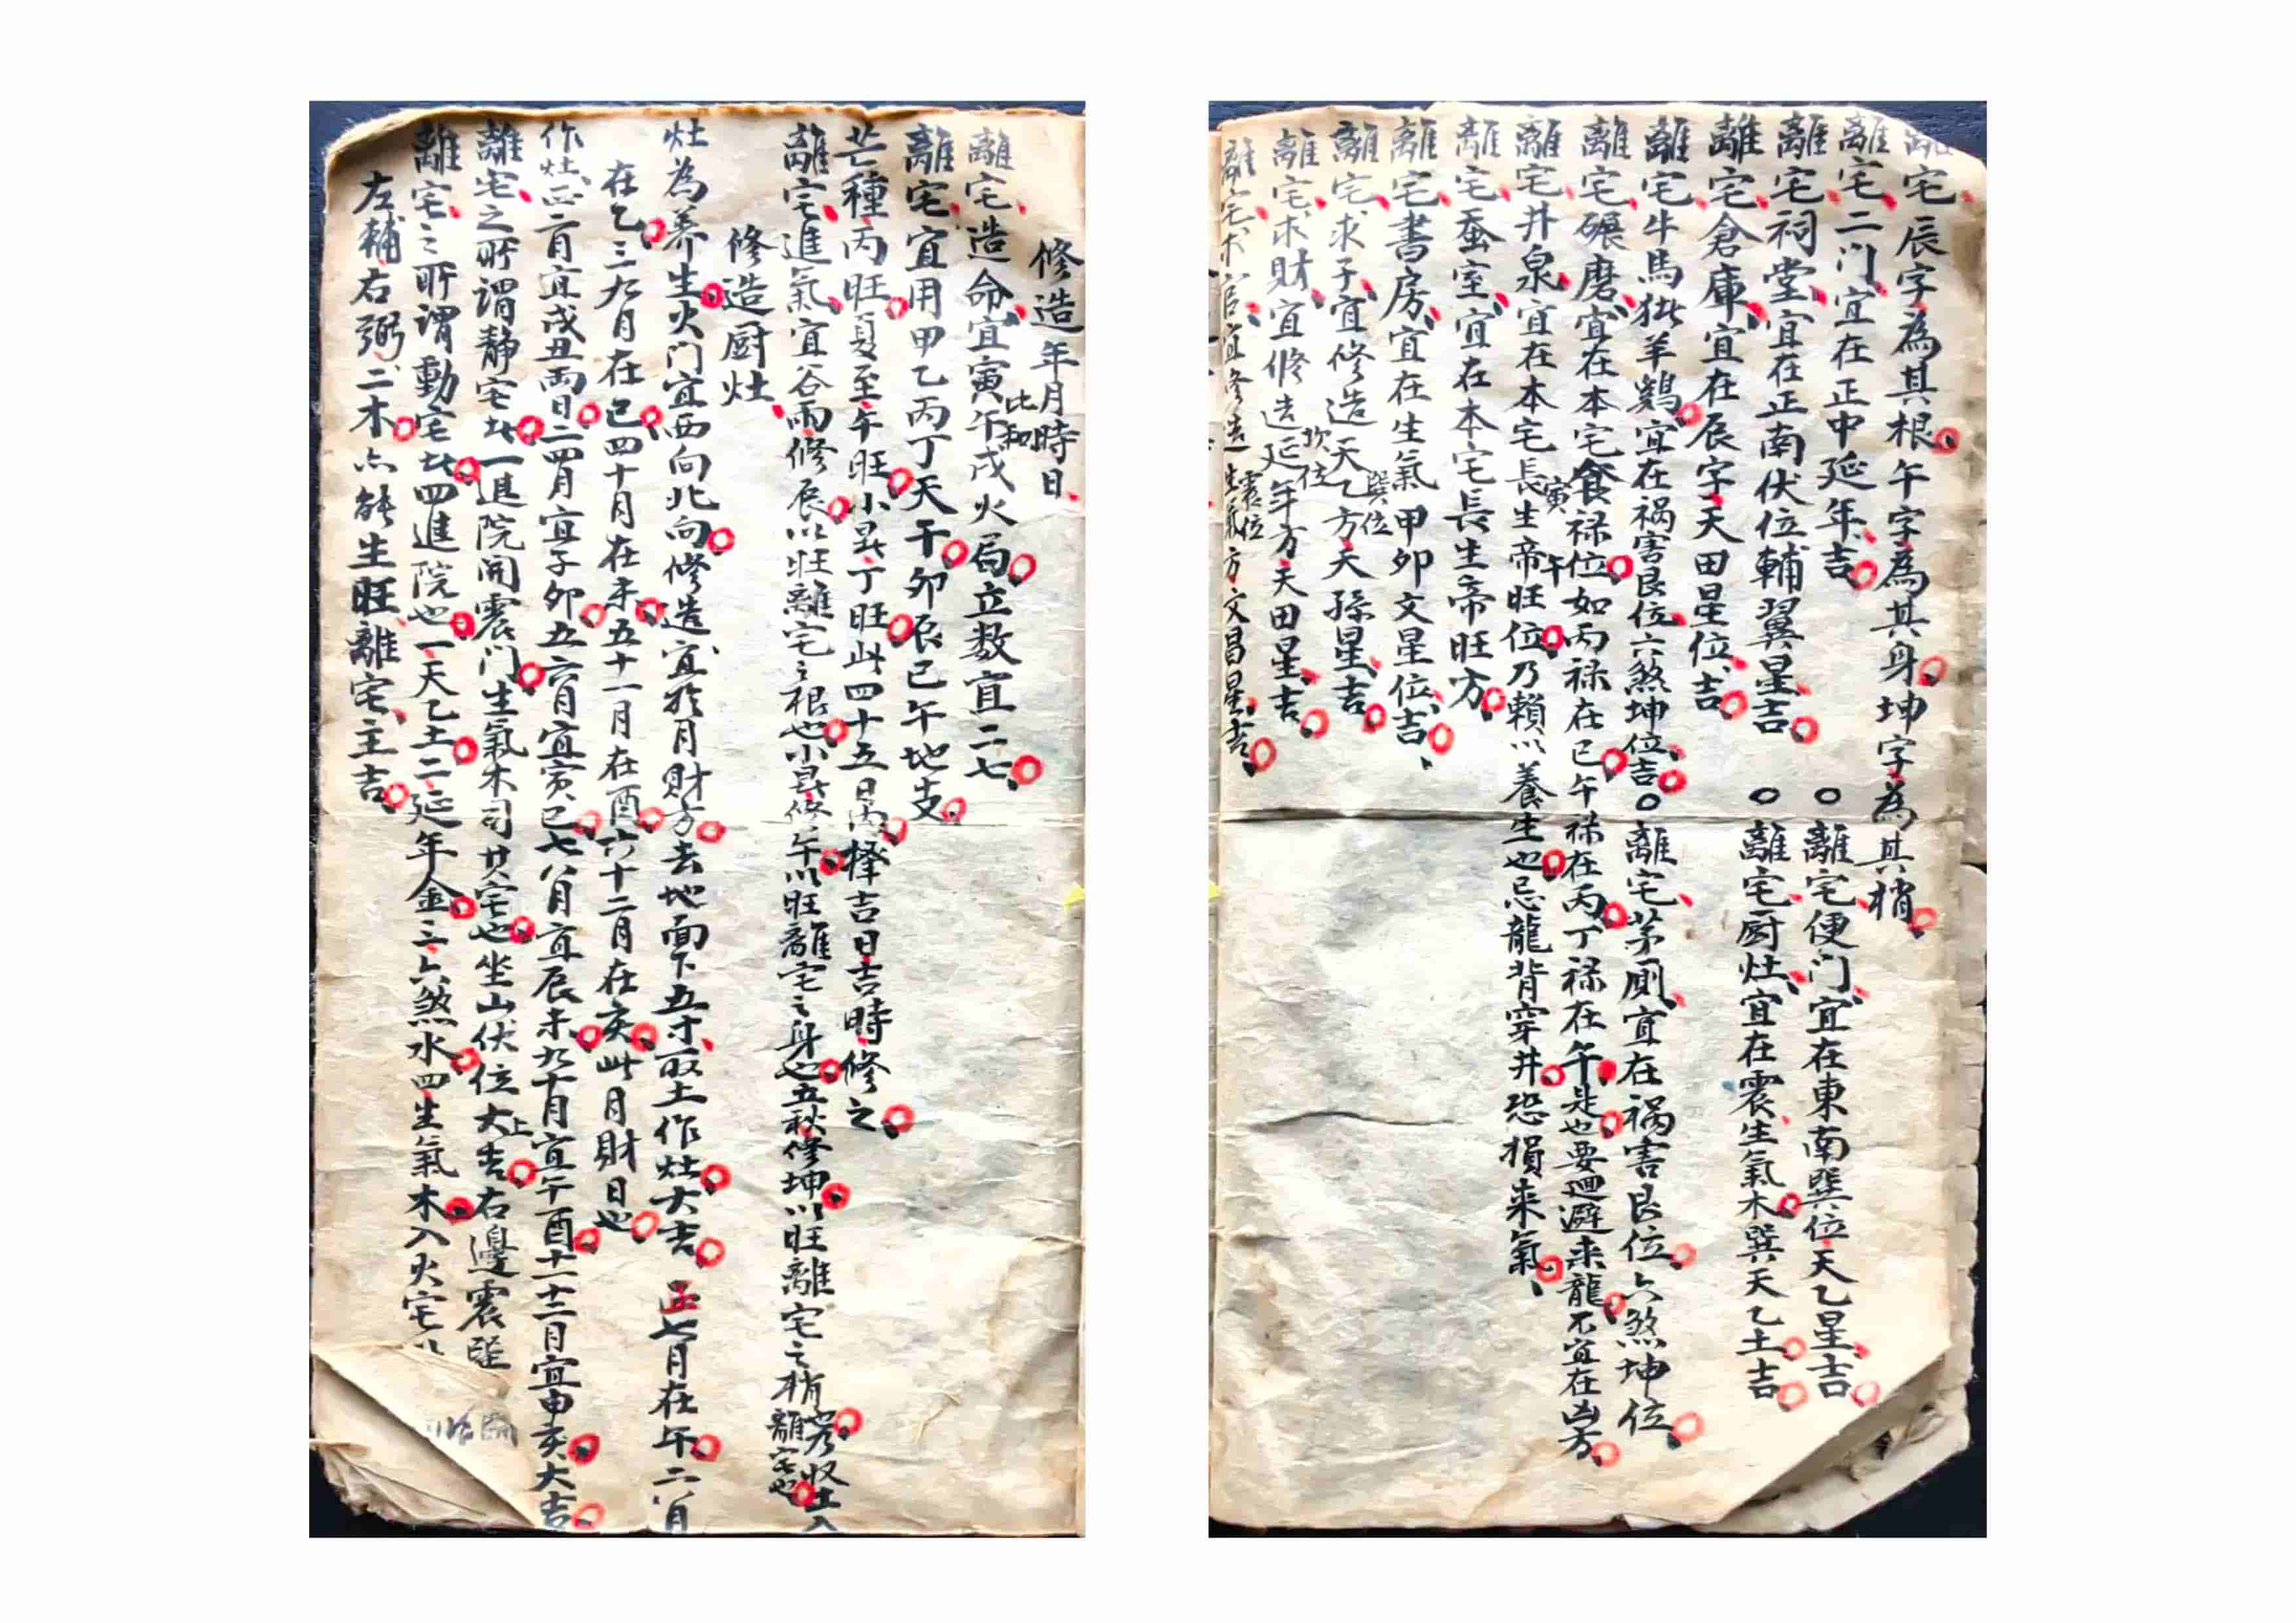 離宅辰字為其根午字為其身坤字為其梢
離宅二门宜在正中延年吉○離宅便门宜在東南巽位天乙星吉
離宅祠堂宜在正南伏位輔翼星吉○離宅厨灶宜在震生氣木巽天乙土吉
離宅倉庫宜在辰字天田星位吉
離宅牛馬猪羊鷄宜在祸害艮位六煞坤位吉○離宅茅厠宜在祸害艮位六煞坤位
離宅碾磨宜在本宅食禄位如丙禄在巳午禄在丙丁禄在午是也要迴避来龍不宜在凶方
離宅井泉宜在本宅長生寅帝旺午位乃賴以養生也忌龍背穿井恐損来氣
離宅蚕室宜在本宅長生帝旺方
離宅書房宜在生氣甲卯文星位吉
離宅求子宜修造天乙巽位方天孫星吉
離宅求財宜修造延年坎位方天田星吉
離宅求官宜修造生氣震位方文昌星吉
修造年月時日
離宅造命宜寅午戌火局立数宜二七比和
離宅宜用甲乙丙丁天干卯辰巳午地支
芒種丙旺夏至午旺小暑丁旺此四十五日内擇吉日吉時修之
離宅進氣宜谷雨修辰以旺離宅之根也小暑修午以旺離宅之身也立秋修坤以旺離宅之梢 離宅也
修造厨灶
灶為养生火门宜西向北向修造宜於月財方去地面下五寸取土作灶大吉 正七月在午二八月
在乙三九月在巳四十月在未五十一月在酉六十二月在亥此月財日也
作灶正二月宜戌丑兩日三四月宜子卯五六月宜寅巳七八月宜辰未九十月宜午酉十一十二月宜申亥大吉
離宅之所谓静宅此一進院開震门生氣木司其宅也坐山伏位大吉上右邊震
離宅之所谓動宅此四進院也一天乙土二延年金三六煞水四生氣木入火宅
左輔右弼二木六能生旺離宅主吉